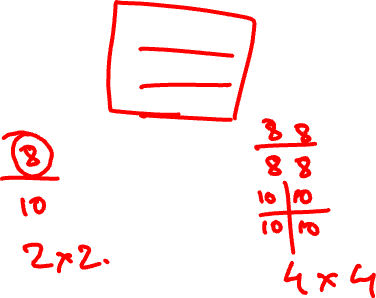 8
10
2x2.
8 8
8 8
10 10
10 10
4x4